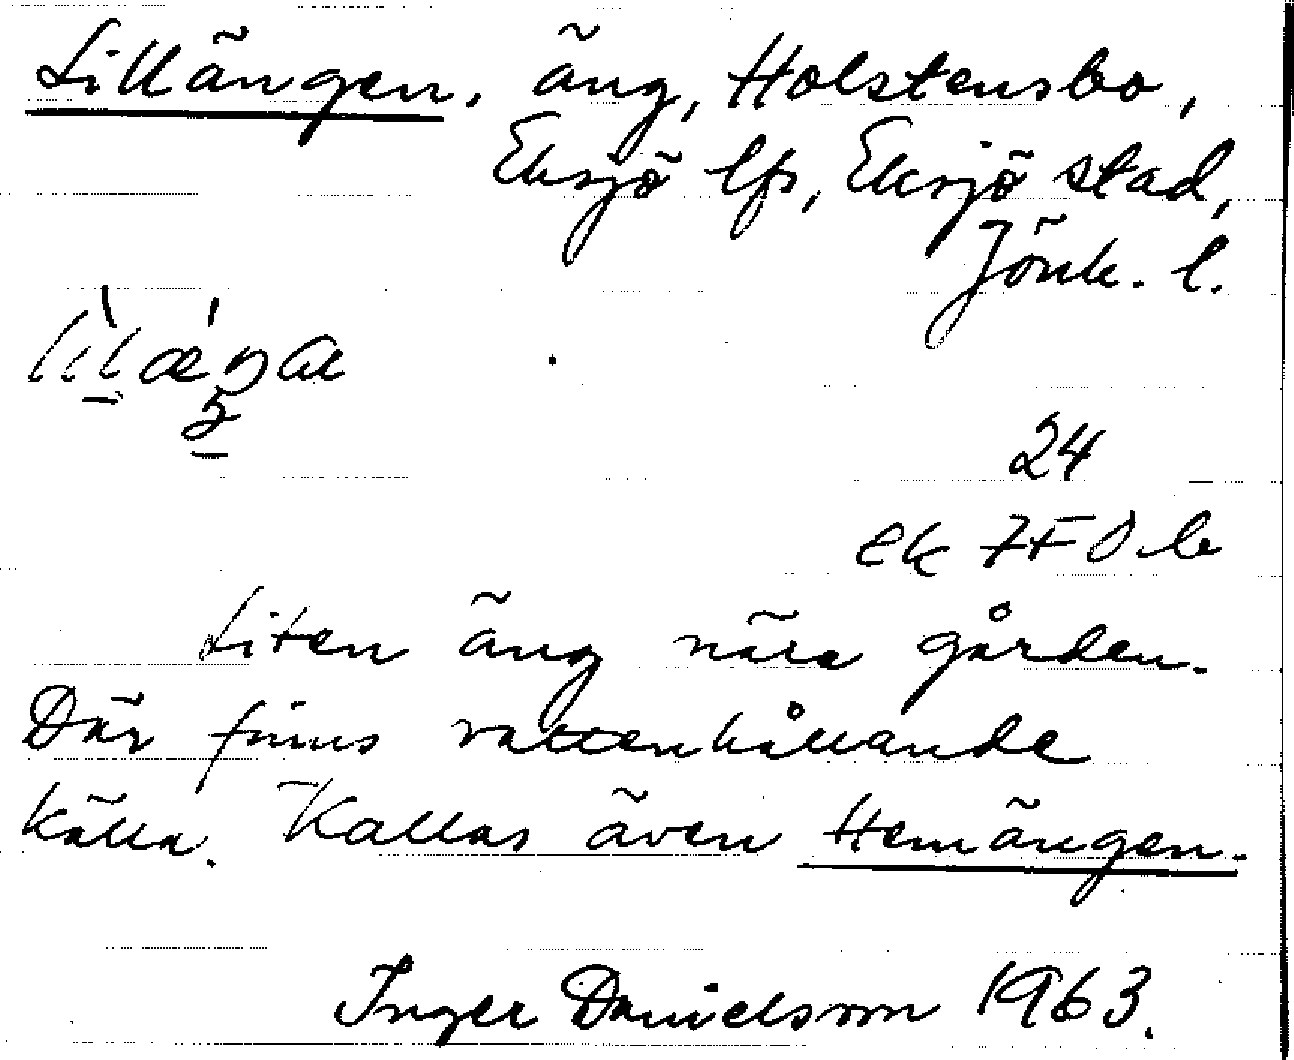 Lillängen, äng, Holstensbo,
Eksjö lfs, Eksjö stad,
Jönk. l.
24
ek 7F0b
Liten äng nära gården.
Där finns vattenhållande
källa. Kallas även Hemängen.
Inger Danielsson 1963.